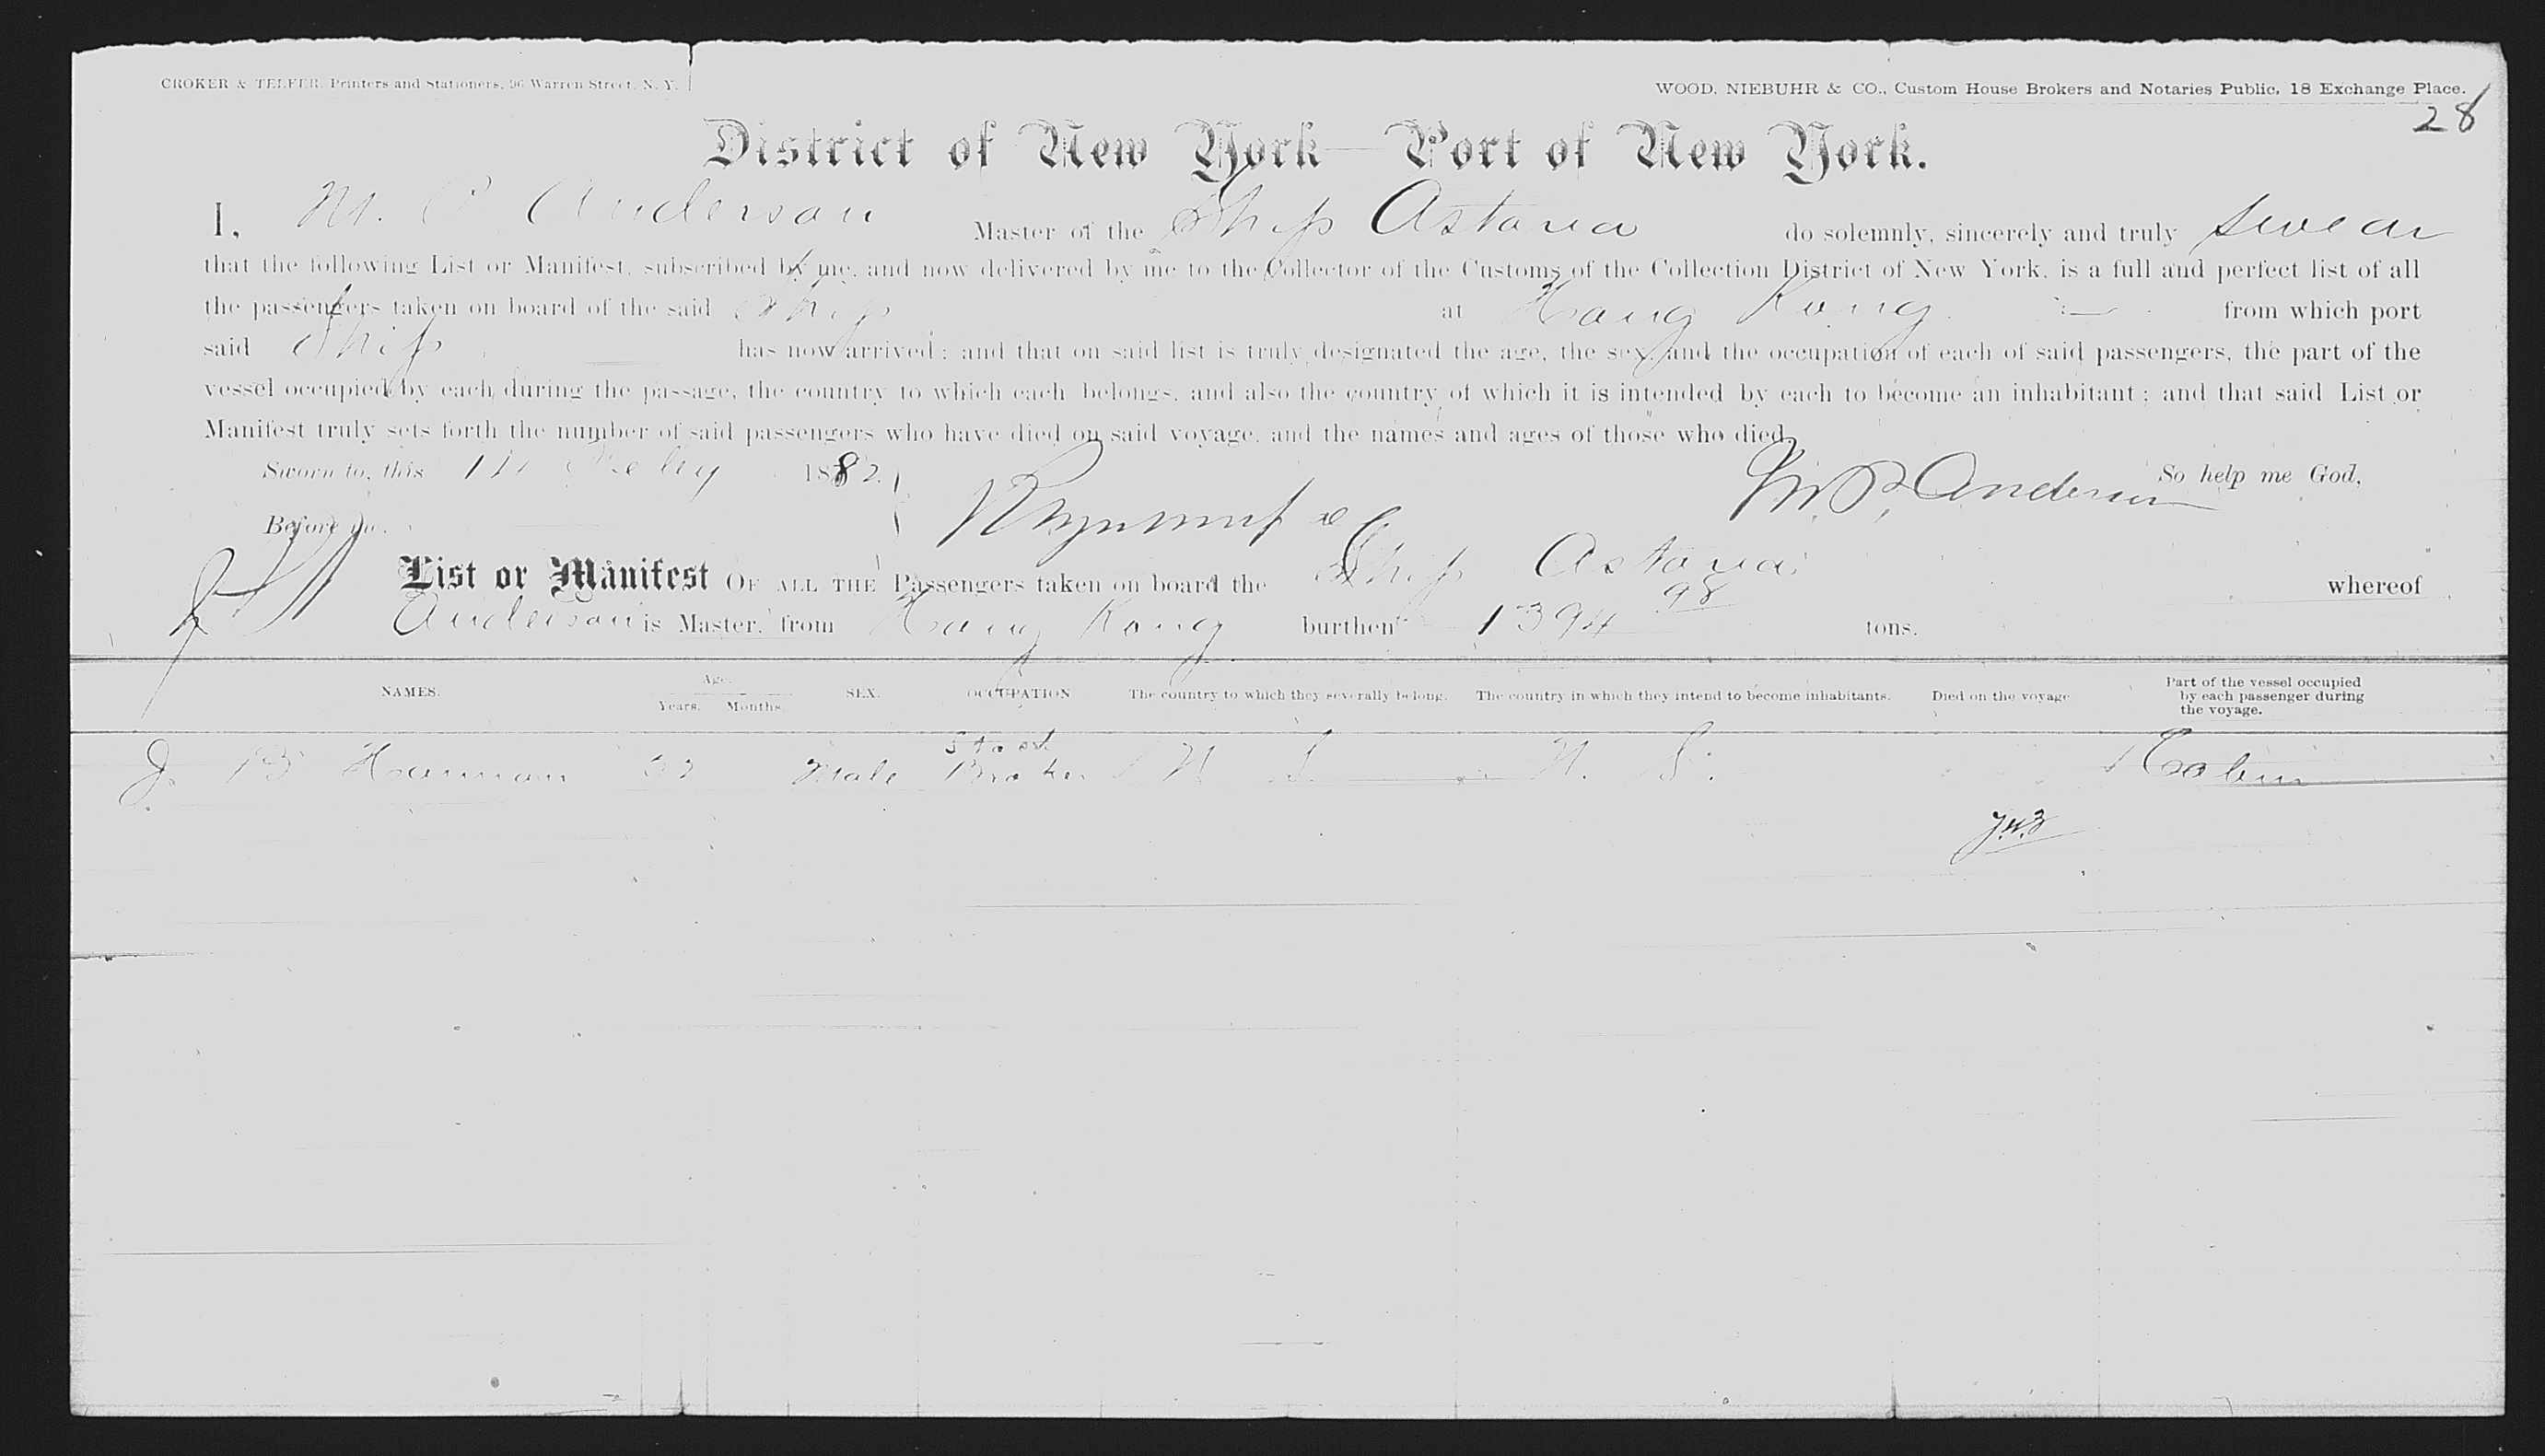 CROKER & TELFER, Printers and Stationers, 96 Warren Street, N. Y.
WOOD, NIEBUHR & CO., Custom House Brokers and Notaries Public, 18 Exchange Place.
28
District of New York—Port of New York.
I, M. P. Anderson Master of the Ship Astoria do solemnly, sincerely and truly swear
that the following List or Manifest, subscribed by me, and now delivered by me to the Collector of the Customs of the Collection District of New York, is a full and perfect list of all
the passengers taken on board of the said Ship at Hong Kong from which port
said Ship has now arrived; and that on said list is truly designated the age, the sex, and the occupation of each of said passengers, the part of the
vessel occupied by each during the passage, the country to which each belongs, and also the country of which it is intended by each to become an inhabitant; and that said List or
Manifest truly sets forth the number of said passengers who have died on said voyage, and the names and ages of those who died.
Sworn to, this Feby 1882. M. P. Anderson So help me God,
Before me.
List or Manifest OF ALL THE Passengers taken on board the Ship Astoria whereof
Anderson is Master, from Hong Kong burthen 1394 98 tons.
NAMES. Age. Years. Months. SEX. OCCUPATION The country to which they severally belong. The country in which they intend to become inhabitants. Died on the voyage Part of the vessel occupied by each passenger during the voyage.
J. B. Harman Male Stock Broker U S U. S. Cabin